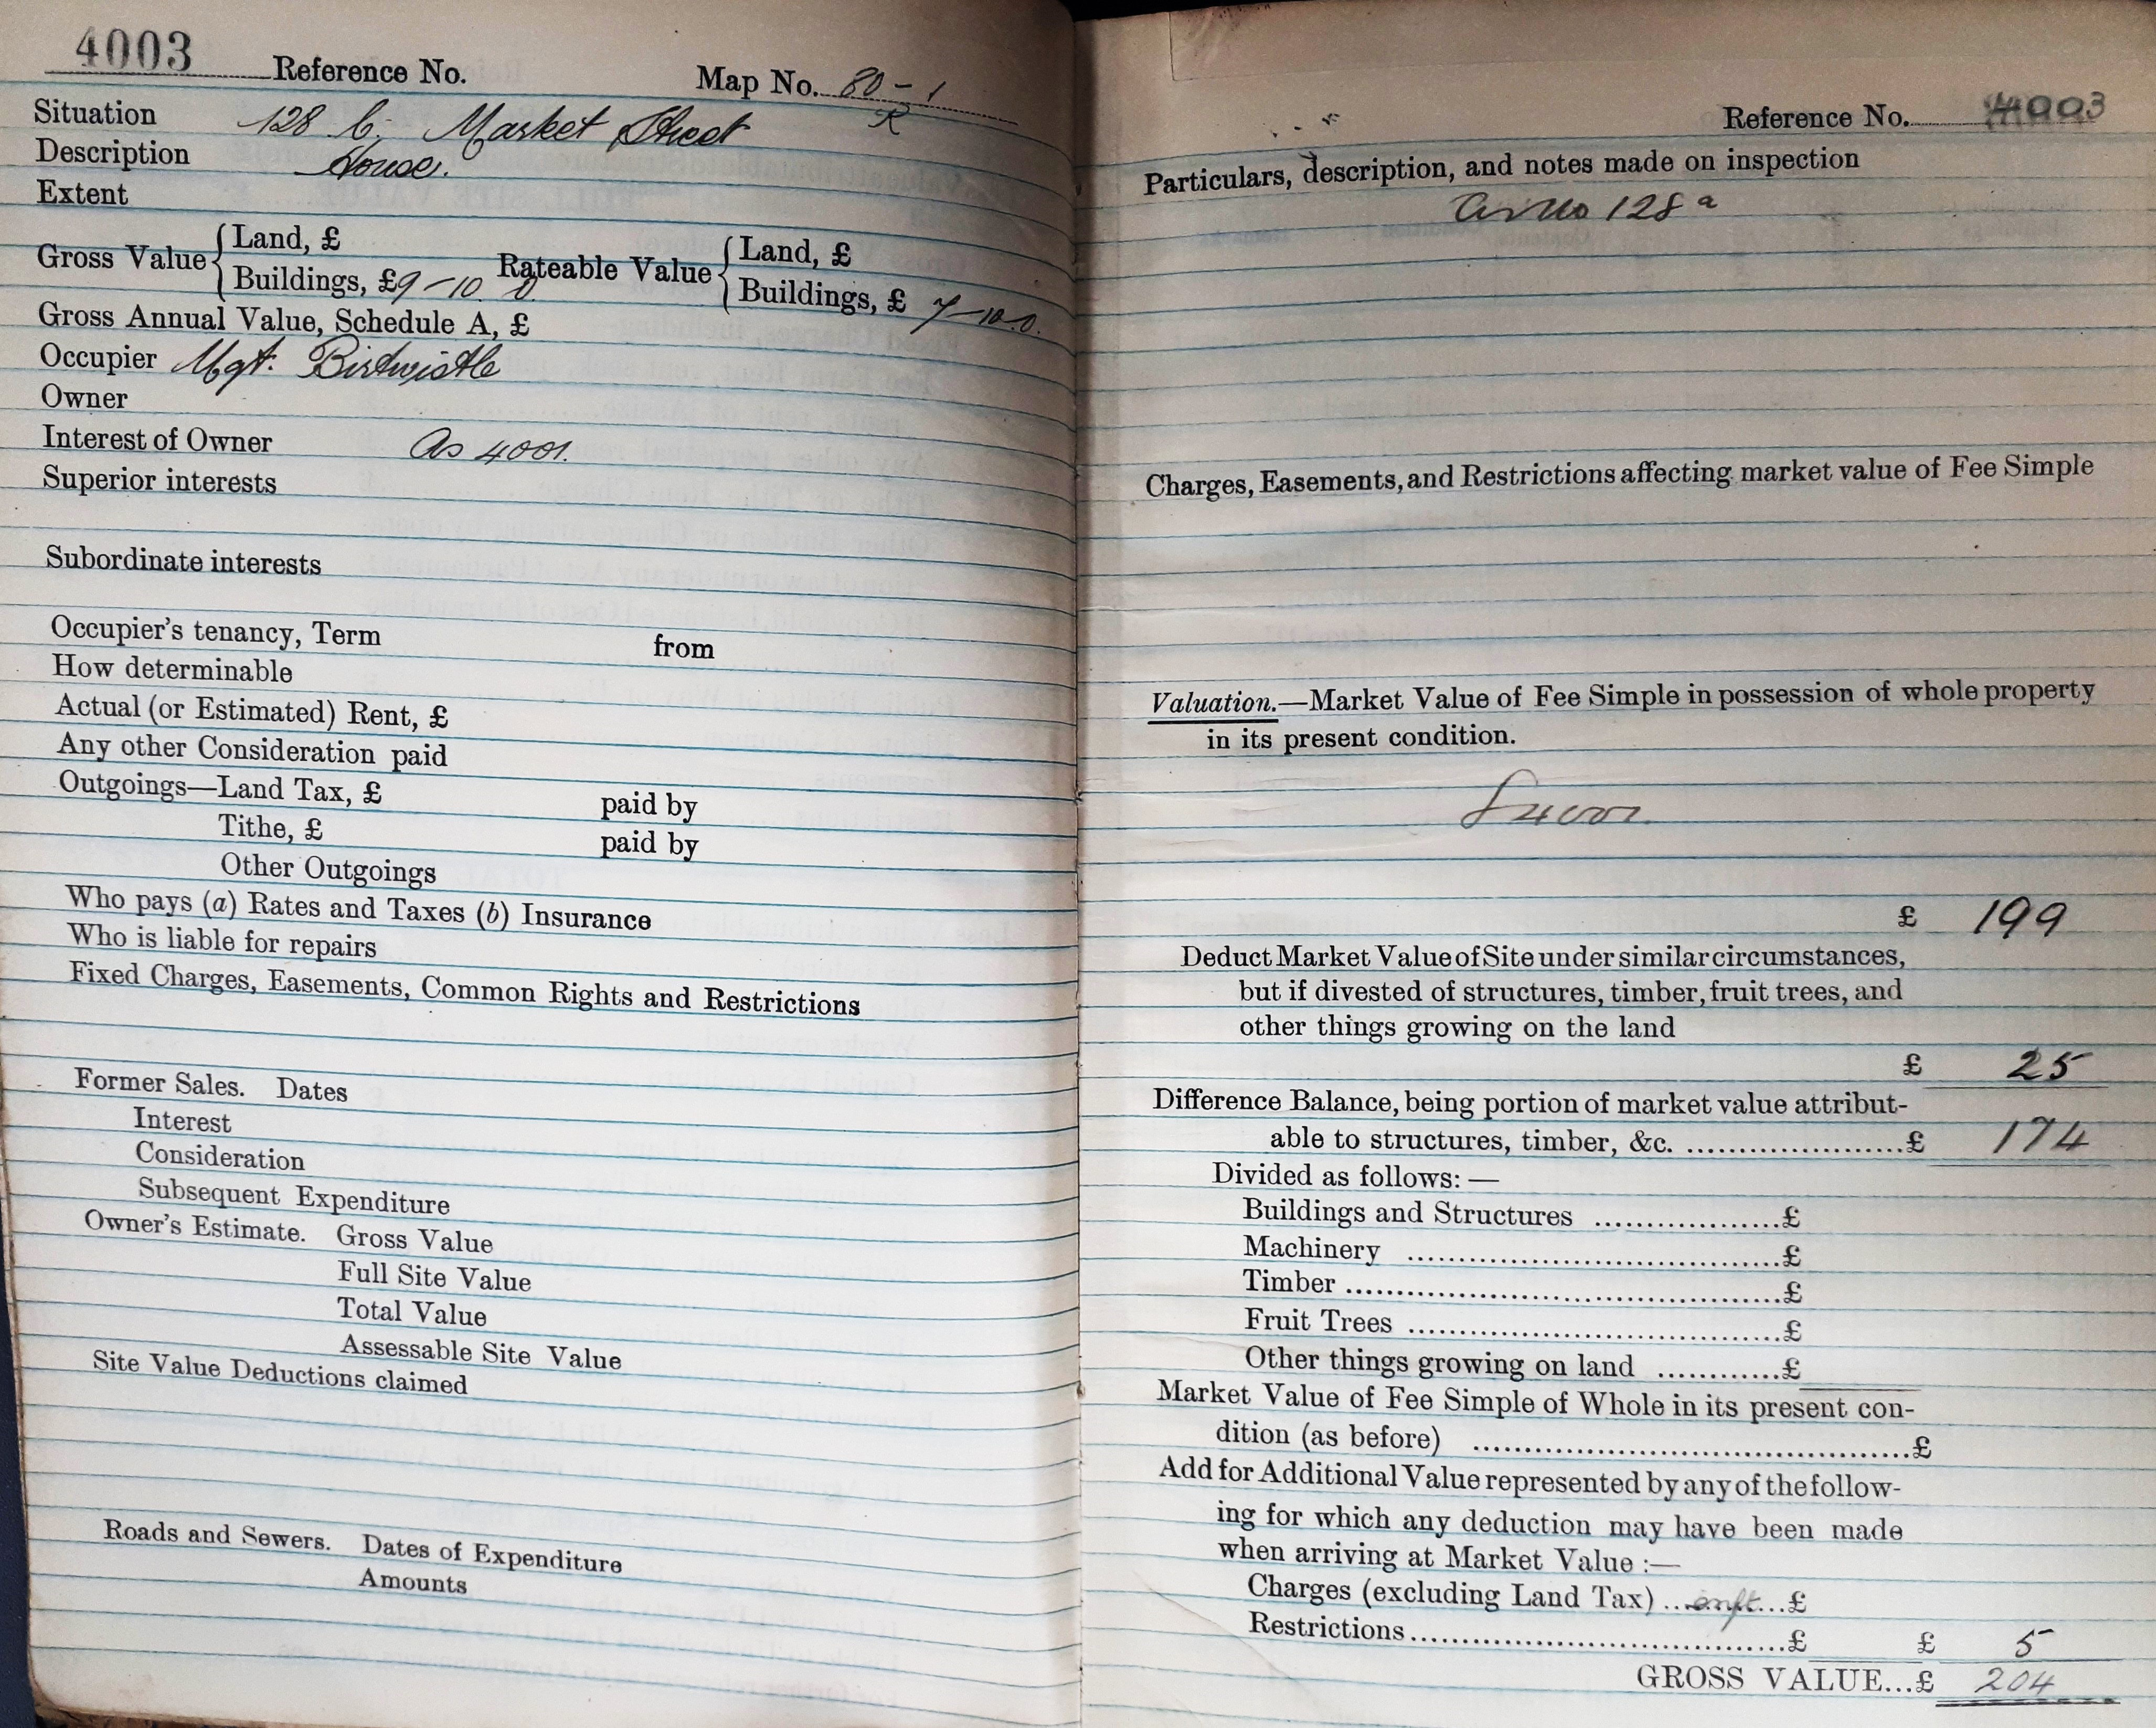 4003 Reference No. Map No. 80-1
R
Situation 128 b. Market Street
Description House.
Extent
Gross Value { Land, £ Rateable Value { Land, £
Buildings, £9-10 0 Buildings, £ 7-10-0.
Gross Annual Value, Schedule A, £
Occupier Mgt. Birtwistle
Owner
Interest of Owner As 4001.
Superior interests
Subordinate interests
Occupier's tenancy, Term from
How determinable
Actual (or Estimated) Rent, £
Any other Consideration paid
Outgoings—Land Tax, £ paid by
Tithe, £ paid by
Other Outgoings
Who pays (a) Rates and Taxes (b) Insurance
Who is liable for repairs
Fixed Charges, Easements, Common Rights and Restrictions
Former Sales. Dates
Interest
Consideration
Subsequent Expenditure
Owner's Estimate. Gross Value
Full Site Value
Total Value
Assessable Site Value
Site Value Deductions claimed
Roads and Sewers. Dates of Expenditure
Amounts
Reference No. 4003
Particulars, description, and notes made on inspection
As No 128 a
Charges, Easements, and Restrictions affecting market value of Fee Simple
Valuation.—Market Value of Fee Simple in possession of whole property
in its present condition.
£ 199
Deduct Market Value of Site under similar circumstances,
but if divested of structures, timber, fruit trees, and
other things growing on the land
£ 25
Difference Balance, being portion of market value attribut-
able to structures, timber, &c. ..................... £ 174
Divided as follows:—
Buildings and Structures ...................£
Machinery .......................................£
Timber .............................................£
Fruit Trees .......................................£
Other things growing on land ............£
Market Value of Fee Simple of Whole in its present con-
dition (as before) .............................................£
Add for Additional Value represented by any of the follow-
ing for which any deduction may have been made
when arriving at Market Value :—
Charges (excluding Land Tax) ... ...£
Restrictions.......................................£ £ 5
GROSS VALUE...£ 204